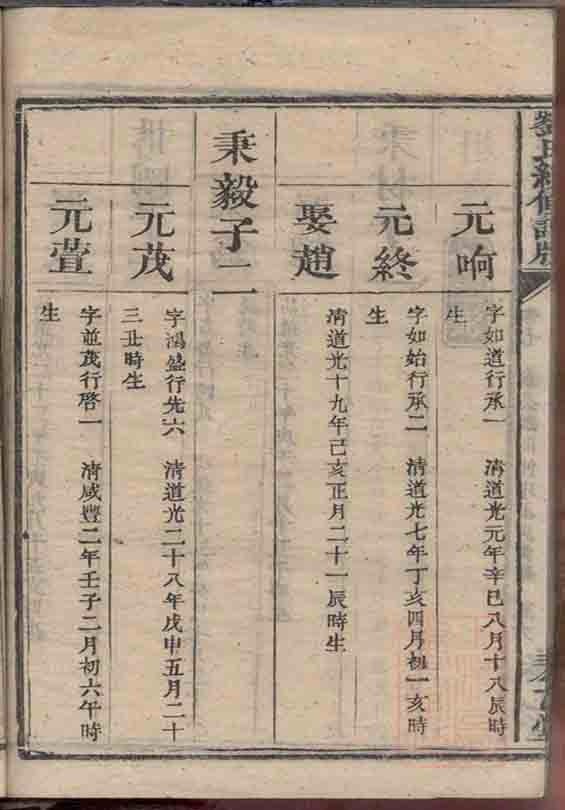 劉氏續修譜牒
元响
字如道行承一　清道光元年辛巳八月十八辰時
生
元終
字如始行承二　清道光七年丁亥四月初一亥時
生
娶趙
清道光十九年己亥正月二十一辰時生
秉毅子二
元茂
字鴻盛行先六　清道光二十八年戊申五月二十
三丑時生
元萱
字並茂行啓一　清咸豐二年壬子二月初六午時
生